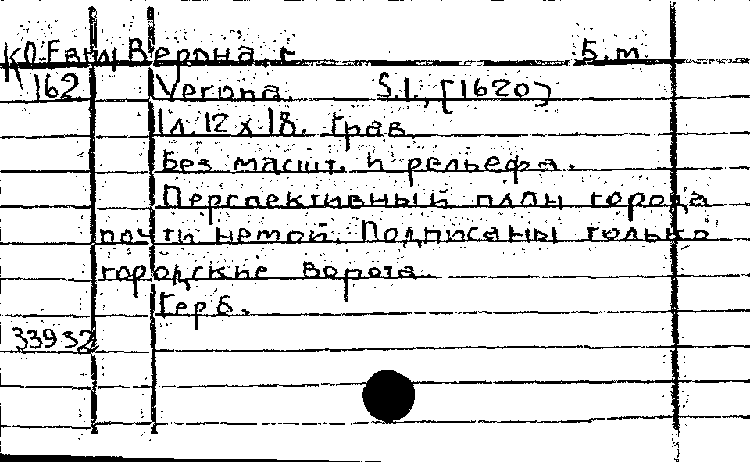 КО.Евг Верона, г. Б.м.
162 Verona. S.l., [1620]
1 л. 12 х 18. Грав.
Без масшт. и рельефа.
Перспективный план города
почти немой. Подписаны только
городские ворота.
Герб.
33932